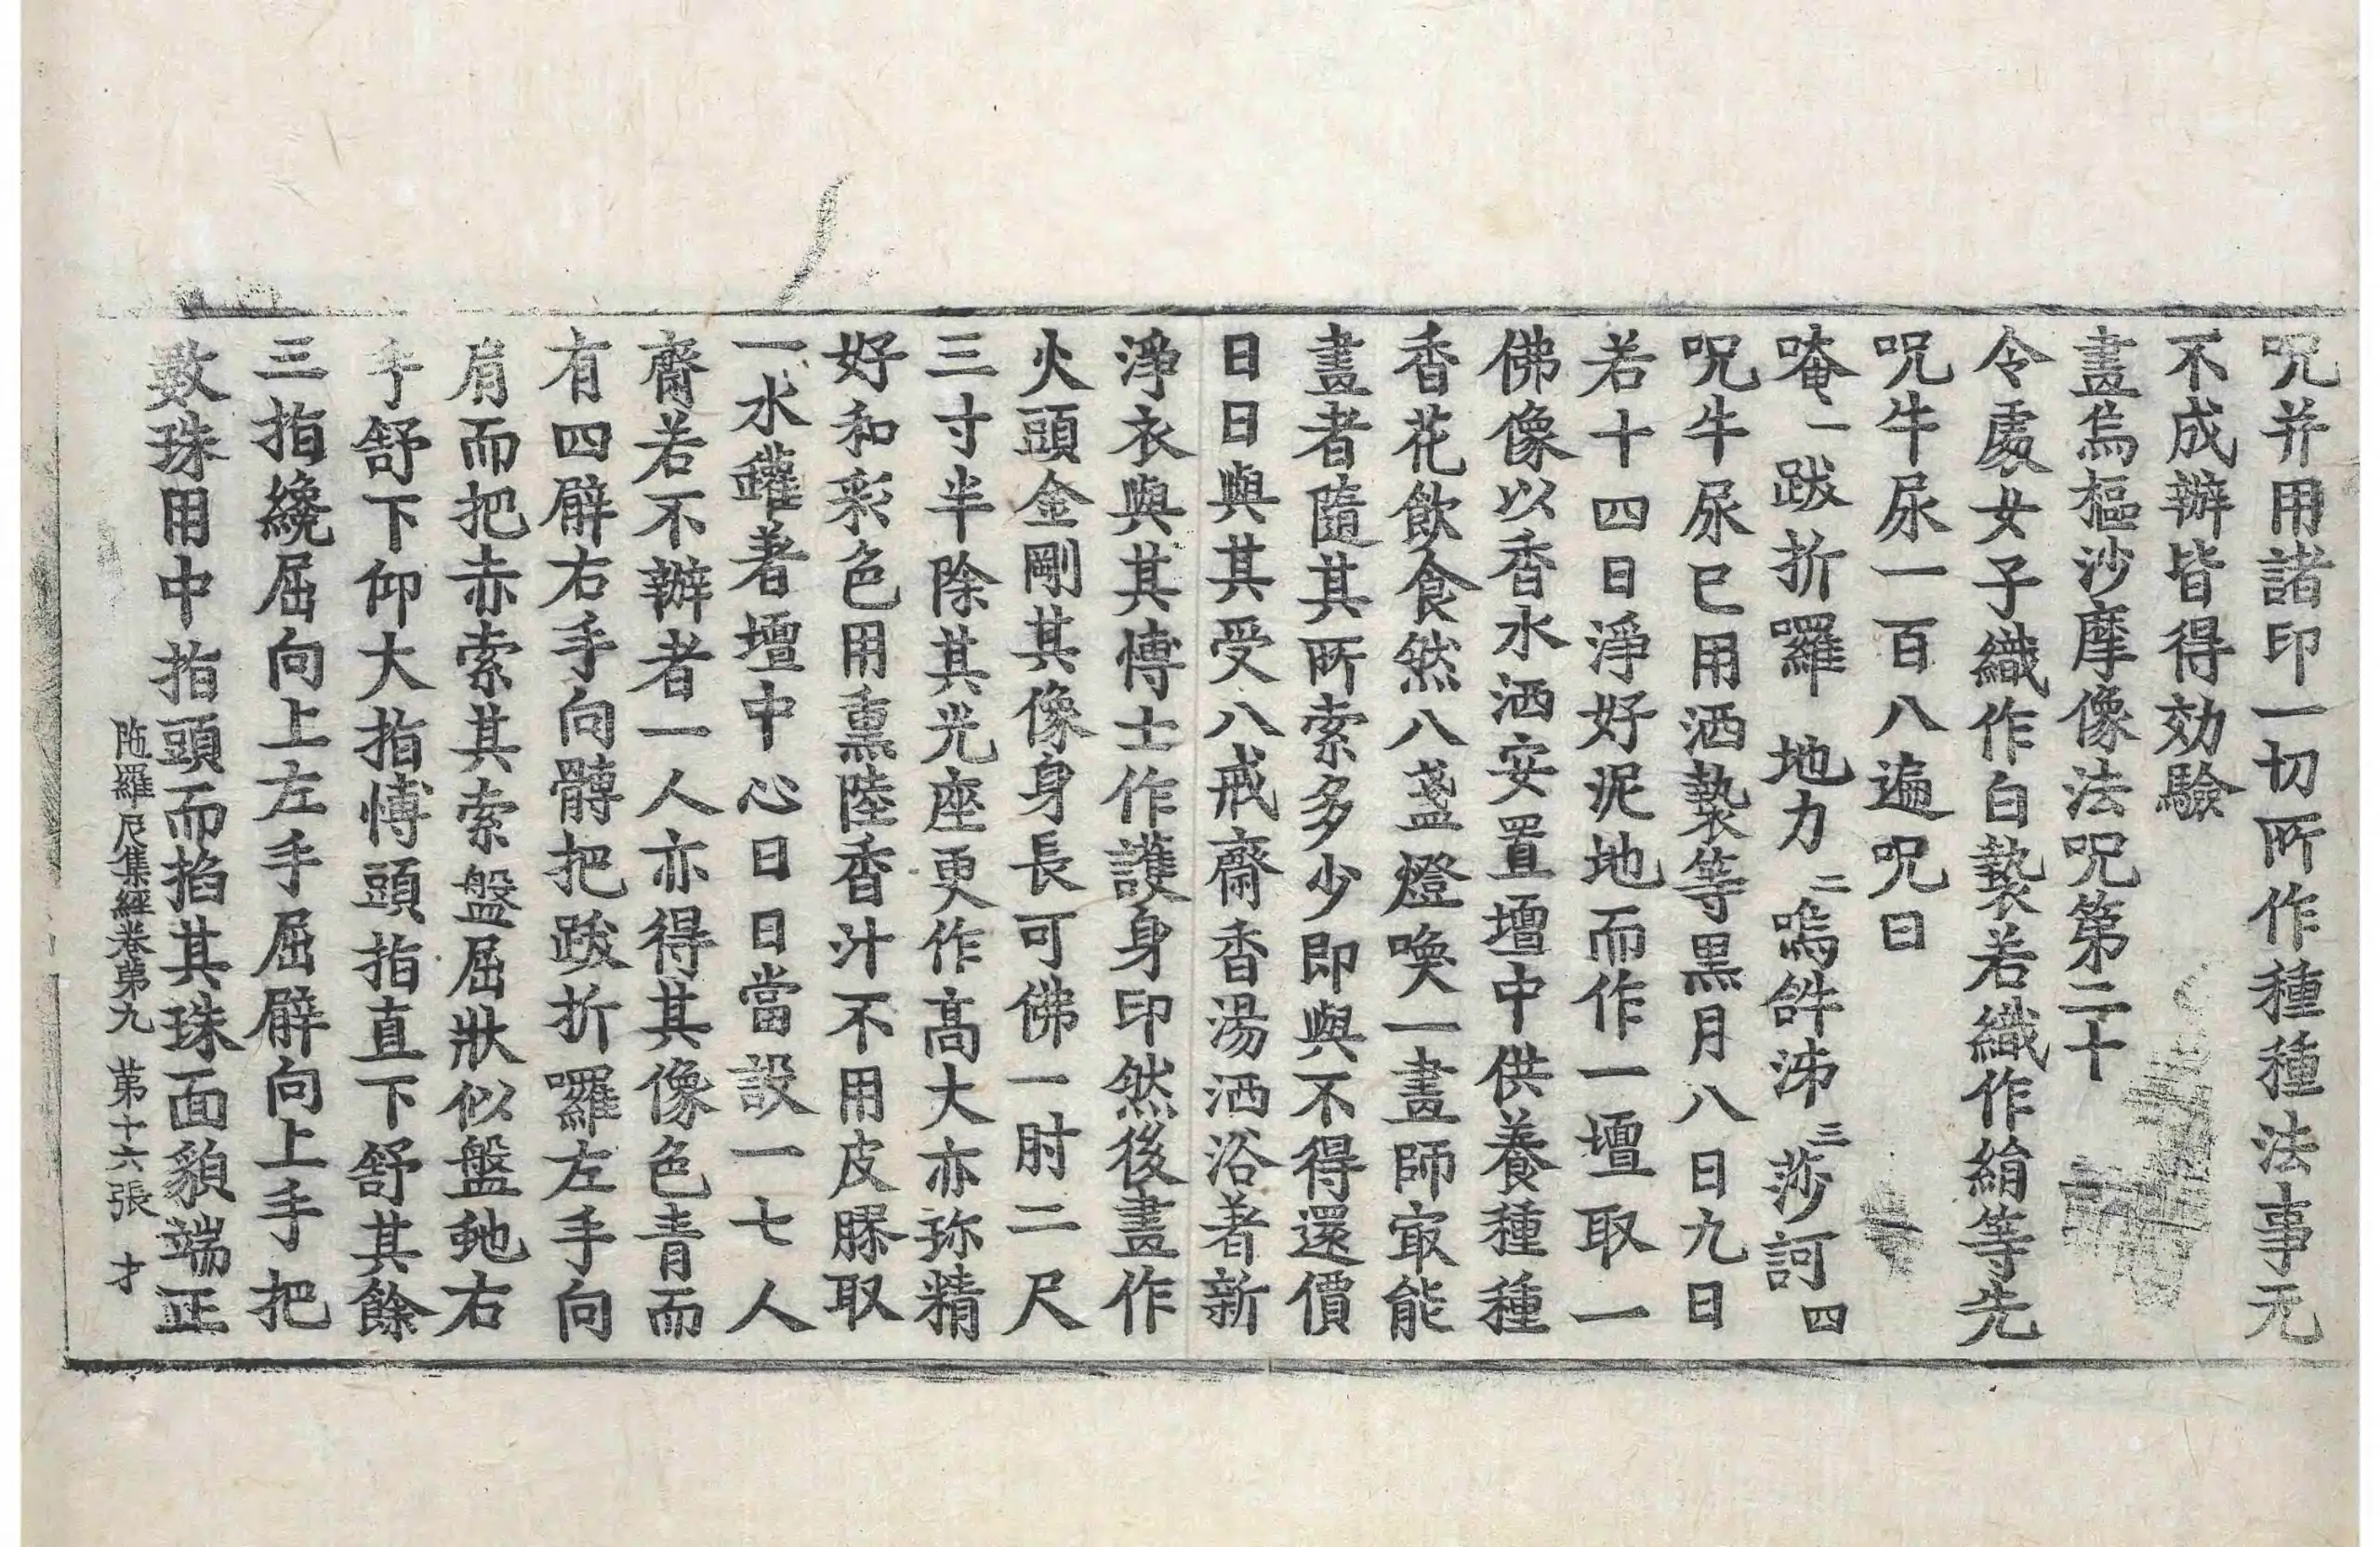 呪并用諸印一切所作種種法事无
不成辦皆得効驗
畫烏樞沙摩像法呪第二十
令處女子織作白㲲若織作絹等先
呪牛尿一百八遍呪曰
唵一跋折囉地力二嗚𤙖泲三莎訶四
呪牛尿已用洒㲲等黒月八日九日
若十四日淨好泥地而作一壇取一
佛像以香水洒安置壇中供養種種
香花飲食然八盞燈喚一畫師㝡能
畫者隨其所索多少即與不得還價
日日與其受八戒齋香湯洒浴著新
淨衣與其博士作護身印然後畫作
火頭金剛其像身長可佛一肘二尺
三寸半除其光座更作高大亦弥精
好和彩色用熏陸香汁不用皮膠取
一水罐著壇中心日日當設一七人
齋若不辦者一人亦得其像色青而
有四臂右手向髆把跋折囉左手向
肩而把赤索其索盤屈狀似盤虵右
手舒下仰大指博頭指直下舒其餘
三指纔屈向上左手屈臂向上手把
數珠用中指頭而掐其珠面貌端正
陁羅尼集經卷第九 第十六張 才